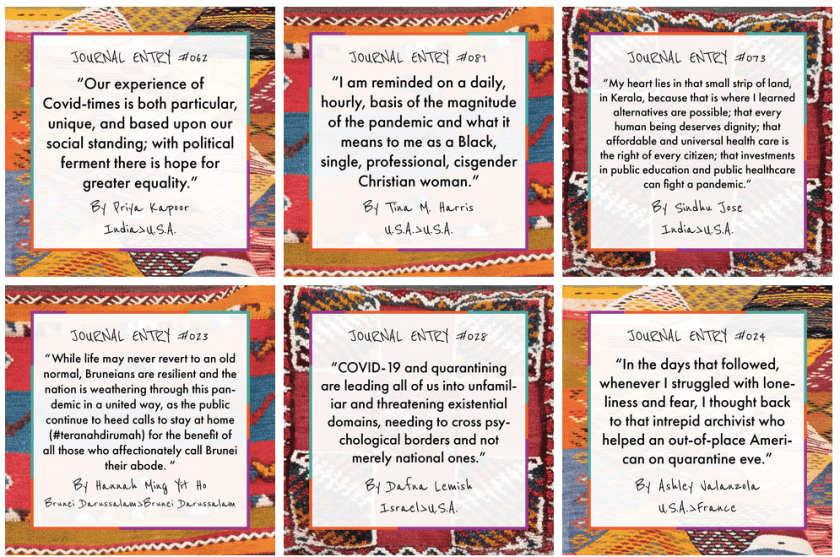 JOURNAL ENTRY #062
“Our experience of
Covid-times is both particular,
unique, and based upon our
social standing; with political
ferment there is hope for
greater equality.”
By Priya Kapoor
India>U.S.A.
JOURNAL ENTRY #081
“I am reminded on a daily,
hourly, basis of the magnitude
of the pandemic and what it
means to me as a Black,
single, professional, cisgender
Christian woman.”
By Tina M. Harris
U.S.A.>U.S.A.
JOURNAL ENTRY #073
“My heart lies in that small strip of land,
in Kerala, because that is where I learned
alternatives are possible; that every
human being deserves dignity; that
affordable and universal health care is
the right of every citizen; that investments
in public education and public healthcare
can fight a pandemic.”
By Sindhu Jose
India>U.S.A.
JOURNAL ENTRY #023
“While life may never revert to an old
normal, Bruneians are resilient and the
nation is weathering through this pan-
demic in a united way, as the public
continue to heed calls to stay at home
(#teranahdirumah) for the benefit of
all those who affectionately call Brunei
their abode. ”
By Hannah Ming Yit Ho
Brunei Darussalam>Brunei Darussalam
JOURNAL ENTRY #028
“COVID-19 and quarantining
are leading all of us into unfamil-
iar and threatening existential
domains, needing to cross psy-
chological borders and not
merely national ones.”
By Dafna Lemish
Israel>U.S.A.
JOURNAL ENTRY #024
“In the days that followed,
whenever I struggled with lone-
liness and fear, I thought back
to that intrepid archivist who
helped an out-of-place Ameri-
can on quarantine eve.”
By Ashley Valanzola
U.S.A.>France